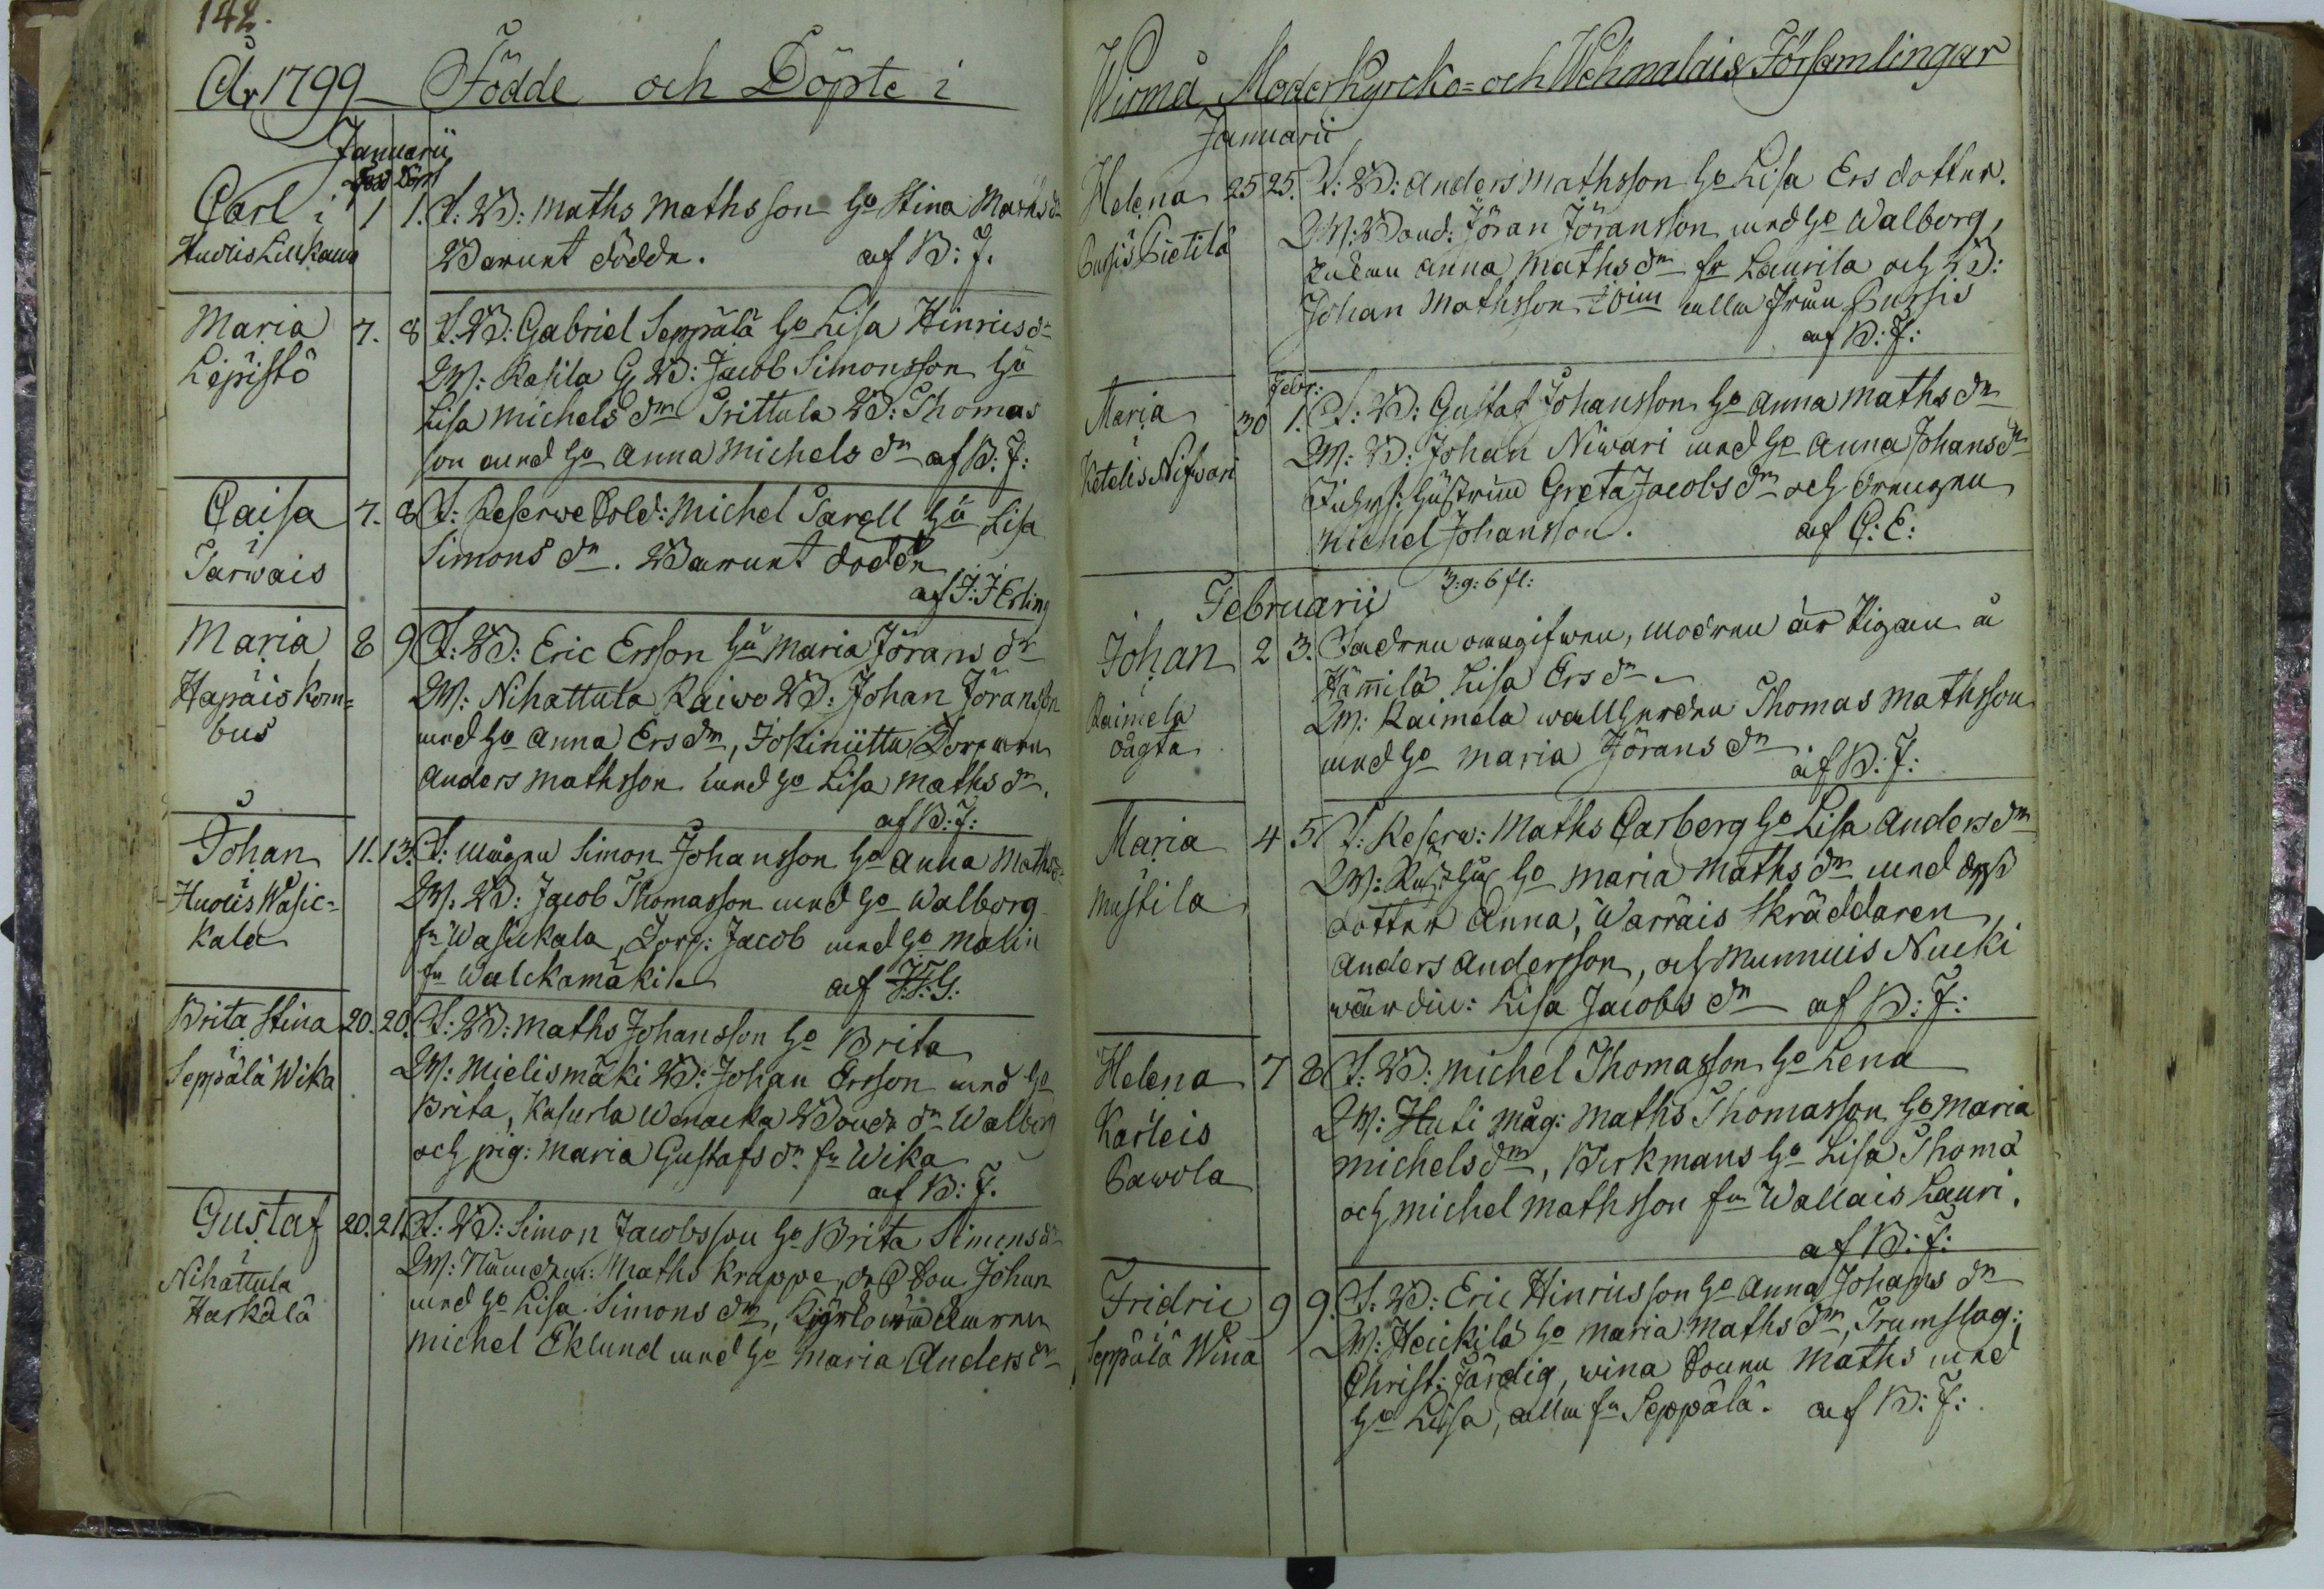 142.
År 1799 Födde och Döpte i
Januarii
Föd Döpt
Carl i 1 1. F: Bd: Maths Mathsson Ho Stina Maths dr
Huolis Leukana Barnet dödde. af B: F.
Maria 7. 8 F. Bd: Gabriel Seppälä Ho Lisa Hinrics dr
Lepistö W: Rasila Bd: Jacob Simonsson Hu
Lisa Michels dr Prittula Bd: Thomas
son med Ho Anna Michels dr af B: F:
Caisa 7. 8 F: Reserve Sold: Michel Parell Hu Lisa
i Simons dr. Barnet dödde
Tarwais af J: F Erling
Maria 8 9 F: Bd: Eric Ersson Hu Maria Jörans dr
i
Hapäis Kom= W: Nihattula Raiwo Bd: Johan Jöransson
bus med Ho Anna Ers dr, Jokiniittu Torparen
Anders Mathsson med Ho Lisa Maths dr.
af B: F:
Johan 11. 13. F: mågen Simon Johansson Ho Anna Maths dr
i
Huolis Wasic= W: Bd: Jacob Thomasson med Ho Walborg
kala fn Wasickala, Torp: Jacob med Ho Malin
fn Walckamäki af J.F.G.
Brita Stina 20. 20. F: Bd: Maths Johansson Ho Brita
i
Seppälä Wika W: Mielismäki Bd: Johan Ersson med Ho
Brita, Kasurla Wenacka Bonde dr Walborg
och pig: Maria Gustafs dr fn Wika
af B: F.
Gustaf 20. 21. F: Bd: Simon Jacobsson Ho Brita Simons dr
i
Nihattula W: Nämdem: Maths Krappe, dess Son Johan
Harkälä med Ho Lisa Simons dr, Kyrkowäktaren
Michel Eklund med Ho Maria Anders dr
Wirmå Moderkyrcko= och Wehmalais Församlingar
Januarii
Helena 25 25. F: Bd: Anders Mathsson Ho Lisa Ers dotter.
Pursis Pietilä W: Bond: Jöran Jöransson med Ho Walborg,
Enkan Anna Maths dr fr Laurila och Bd:
Johan Mathsson Toim alla från Pursis
af B: F:
Febr:
Maria 30 1. F: Bd: Gustaf Johansson Ho Anna Maths dr
Ketelis Nifwari W: Bd: Johan Niwari med Ho Anna Johans dr
Hustrun Greta Jacobs dr och drengen
Michel Johansson. af C: E:
3: g: 6 fl:
Februarii
Johan 2 3. Fadren omgifwen, modren är Pigan å
i Hämilä Lisa Ers dr
Raimela W: Raimela wallherden Thomas Mathsson
oågta med Ho Maria Jörans dr. af B: F:
Maria 4 5 F: Reserv: Maths Carberg Ho Lisa Anders dr
i
Mustila W: Ho Maria Maths dr med dess
dotter Anna, Warräis Skräddaren
Anders Andersson, och Munnuis Nucki
wärdin: Lisa Jacobs dr af B: F:
Helena 7 8 F: Bd: Michel Thomasson Ho Lena
i
Karleis W: Huti måg: Maths Thomasson Ho Maria
Pawola Michels dr, Birkmans Ho Lisa Thoma
och Michel Mathsson fn Wallais Lauri.
af B: F:
Fridric 9 9. F: Bd: Eric Hinricsson Ho Anna Johans dr
i
Seppälä Wina W: Heickilä Ho Maria Maths dr, Trumslag:
Christ: Färdig, wina Sonen Maths med
Ho Lisa, alla fn Seppälä. af B: F: